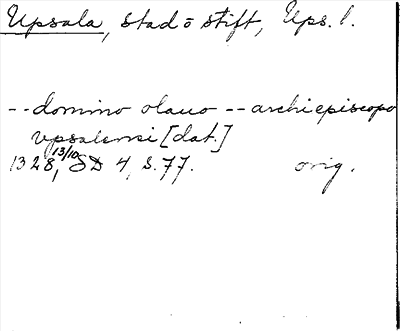 Upsala, stad o stift, Ups. l.
-- domino olauo -- archiepiscopo
vpsalensi [dat.]
1328, 13/10 SD 4, s. 77. orig.